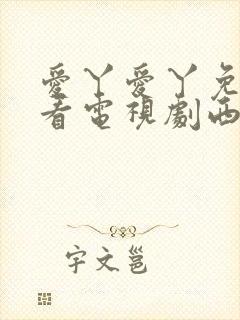 愛丫愛丫免
看電視劇西
宇文邕